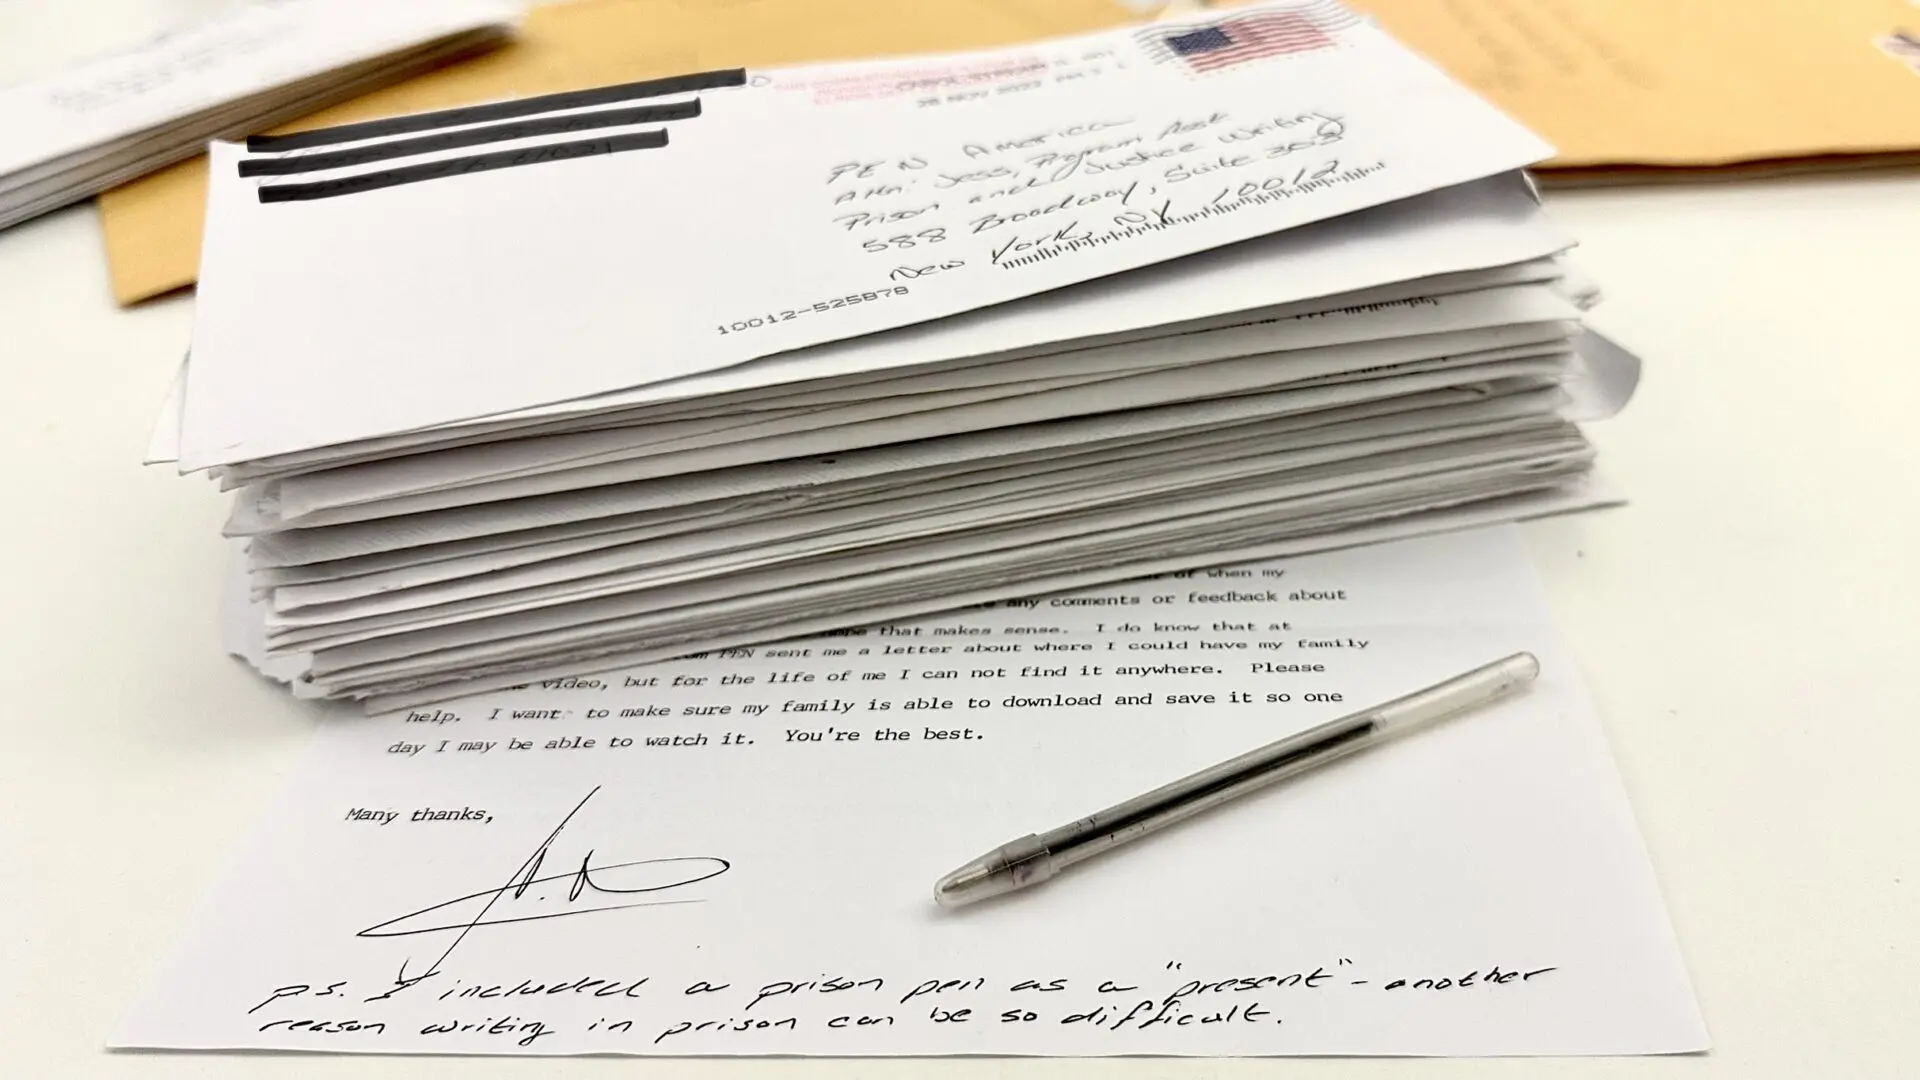 28 NOV 2022 PM
PEN America
Attn: Jess, Program Asst
Prison and Justice Writing
588 Broadway, Suite 303
New York, NY 10012
10012-525878
of when my
any comments or feedback about
that makes sense. I do know that at
PEN sent me a letter about where I could have my family
video, but for the life of me I can not find it anywhere. Please
help. I want to make sure my family is able to download and save it so one
day I may be able to watch it. You're the best.
Many thanks,
ps. I included a prison pen as a "present" - another
reason writing in prison can be so difficult.